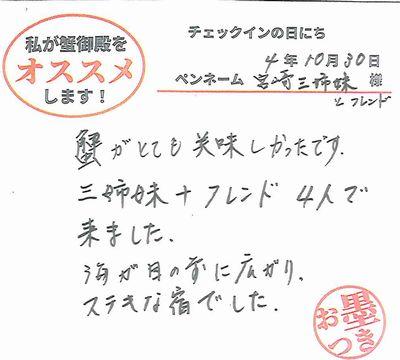 私が蟹御殿を
オススメ
します！
チェックインの日にち
4年10月30日
ペンネーム 宮崎三姉妹 様
とフレンド
蟹がとても美味しかったです.
三姉妹+フレンド 4人で
来ました.
海が目の前に広がり.
ステキな宿でした.
お墨つき